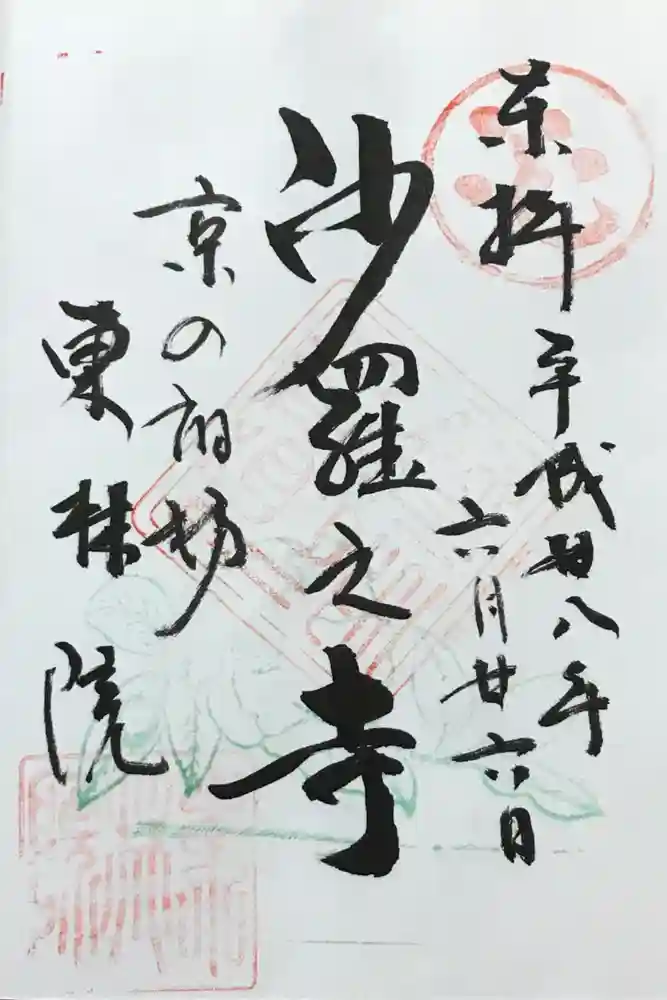 奉拝
平成廿八年
六月廿六日
沙羅之寺
京の
東林院